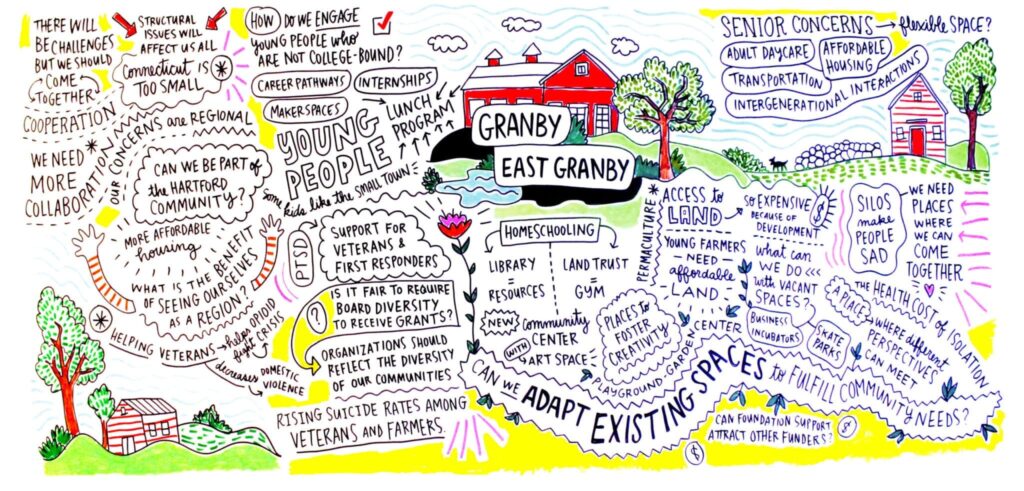 THERE WILL
BE CHALLENGES
BUT WE SHOULD
COME
TOGETHER
COOPERATION
WE NEED
MORE
COLLABORATION
STRUCTURAL
ISSUES WILL
AFFECT US ALL
CONNECTICUT IS
TOO SMALL
OUR CONCERNS are REGIONAL
CAN WE BE PART of
the HARTFORD
COMMUNITY?
MORE AFFORDABLE
housing
WHAT IS the BENEFIT
OF SEEING OURSELVES
AS A REGION?
HELPING VETERANS
helps OPIOID
fight CRISIS
decreases
DOMESTIC
VIOLENCE
HOW DO WE ENGAGE
YOUNG PEOPLE who
ARE NOT COLLEGE-BOUND?
CAREER PATHWAYS
INTERNSHIPS
MAKERSPACES
LUNCH
PROGRAM
YOUNG
PEOPLE
some kids like the SMALL TOWN
PTSD
SUPPORT FOR
VETERANS &
FIRST RESPONDERS
?
IS IT FAIR TO REQUIRE
BOARD DIVERSITY
TO RECEIVE GRANTS?
ORGANIZATIONS SHOULD
REFLECT THE DIVERSITY
OF OUR COMMUNITIES
RISING SUICIDE RATES AMONG
VETERANS AND FARMERS.
GRANBY
EAST GRANBY
HOMESCHOOLING
LIBRARY
=
RESOURCES
LAND TRUST
=
GYM
NEW
COMMUNITY
CENTER
WITH
ART SPACE
PLACES to
FOSTER
CREATIVITY
PLAYGROUND-GARDEN
CENTER
PERMACULTURE
ACCESS to
LAND
YOUNG FARMERS
NEED
affordable
LAND
SO EXPENSIVE
BECAUSE OF
DEVELOPMENT
$
what can
WE DO
with VACANT
SPACES?
BUSINESS
INCUBATORS
SKATE
PARKS
CAN WE ADAPT EXISTING SPACES to FULFILL COMMUNITY NEEDS?
CAN FOUNDATION SUPPORT
ATTRACT OTHER FUNDERS?
$
$
SENIOR CONCERNS
flexible SPACE?
ADULT DAYCARE
AFFORDABLE
HOUSING
TRANSPORTATION
INTERGENERATIONAL INTERACTIONS
SILOS
make
PEOPLE
SAD
WE NEED
PLACES
WHERE
WE CAN
COME
TOGETHER
THE HEALTH COST of ISOLATION
A PLACE
WHERE different
PERSPECTIVES
CAN MEET